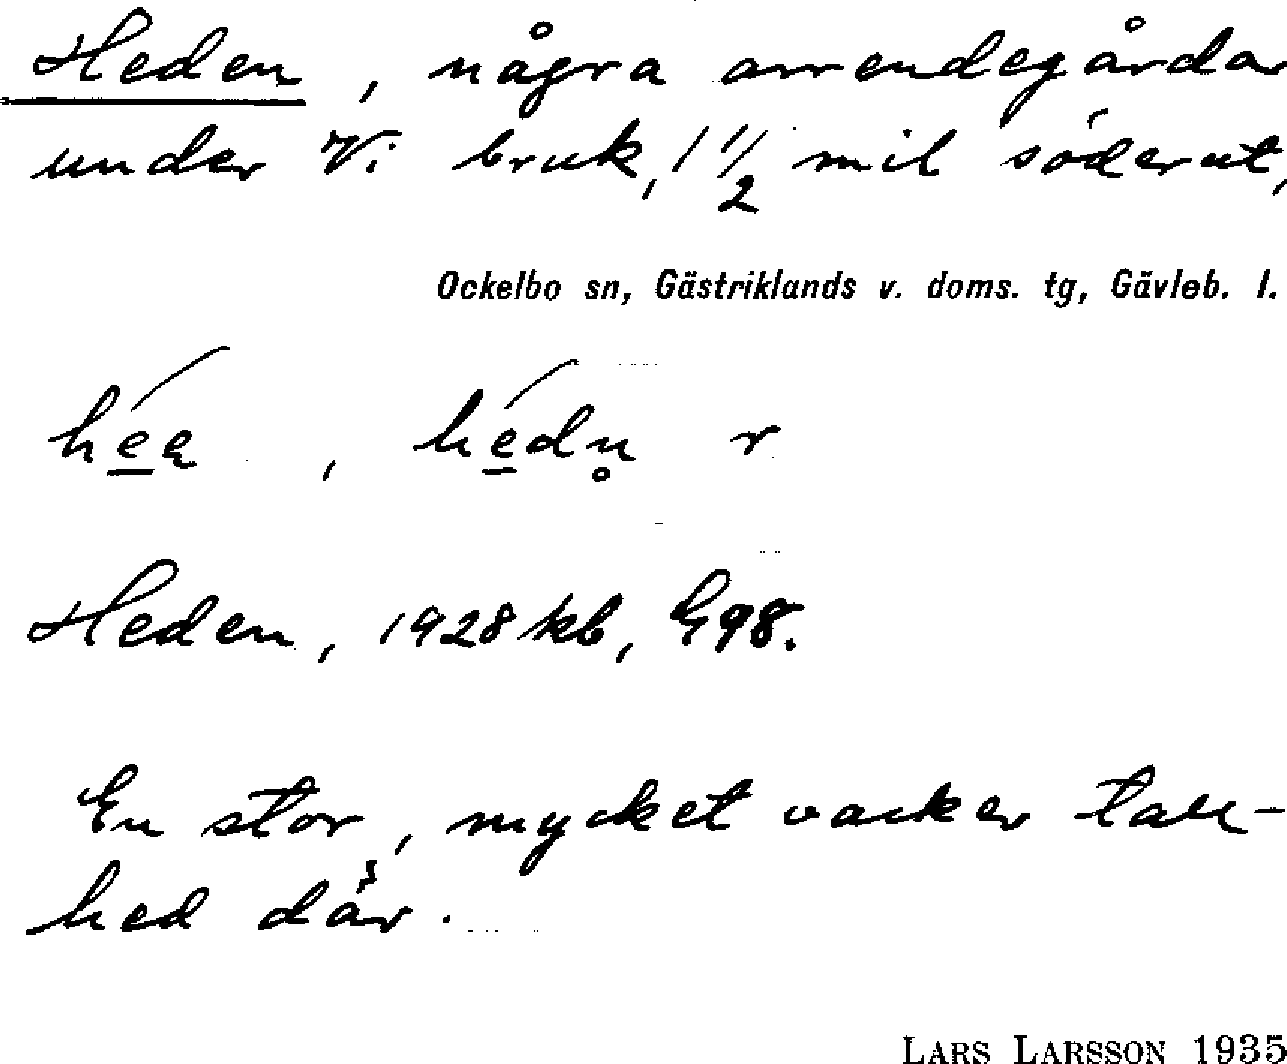 Heden, några arrendegårdar
under Vi bruk, 1 1/2 mil söderut,
Ockelbo sn, Gästriklands v. doms. tg, Gävleb. l.
Heden, 1928 kb, G98.
En stor, mycket vacker tall-
hed där.
LARS LARSSON 1935